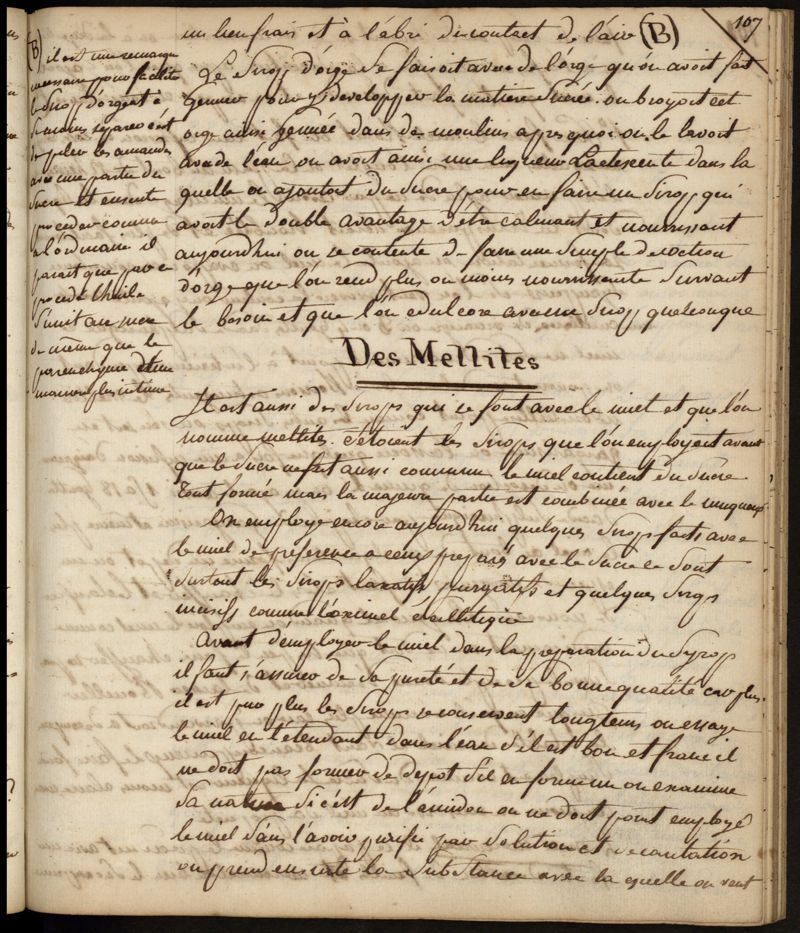 107
un lieu frais et à l'ébri du contact de l'air (B)
Le Sirop d'orge Se faisoit avec de l'orge qu'on avoit fait
germer pour y developper la matiere Sucrée. on broyoit cet
orge ainsi germée dans des moulins apres quoi on le lavoit
avec de l'eau on avoit ainsi une liqueur Lactescente dans la
quelle on ajoutoit du Sucre pour en faire un Sirop qui
avoit le double avantage d'être calmant et nourrissant
aujourdhui on se contente de faire une Simple decoction
d'orge que l'on rend plus ou moins nourrissante Suivant
le besoin et que l'on edulcore avec un Sirop quelconque
Des Mellites
Il est aussi des Sirops qui se font avec le miel et que l'on
nomme mellites. c'étoient les Sirops que l'on employoit avant
que le Sucre ne fut aussi commun. le miel contient du Sucre
tout formé mais la majeure partie est combinée avec le muqueux
On employe encore aujourdhui quelques Sirops faits avec
le miel de preference a ceux preparés avec le Sucre ce Sont
Surtout les Sirops laxatifs purgatifs et quelques Sirops
incisifs comme l'oximel Scillitique
Avant d'employer le miel dans la preparation du Syrop
il faut s'assurer de Sa pureté et de Sa bonne qualité car plus
il est pur plus les Sirops se conservent longtems on essaye
le miel en l'étendant dans l'eau S'il est bon et franc il
ne doit pas former de depot S'il en forme un on examine
Sa nature Si c'est de l'amidon on ne doit point employé
le miel Sans l'avoir purifié par Solution et decantation
on prend ensuite la Substance avec la quelle on veut
(B) il est une remarque
necessaire pour faciliter
le Sirop d'orgeat à
Se moins separer c'est
de piler les amandes
avec une partie du
Sucre et ensuite
proceder comme
a l'ordinaire il
parait que par ce
procedé l'huile
S'unit au sucre
de même que le
parenchyme d'une
maniere plus intime